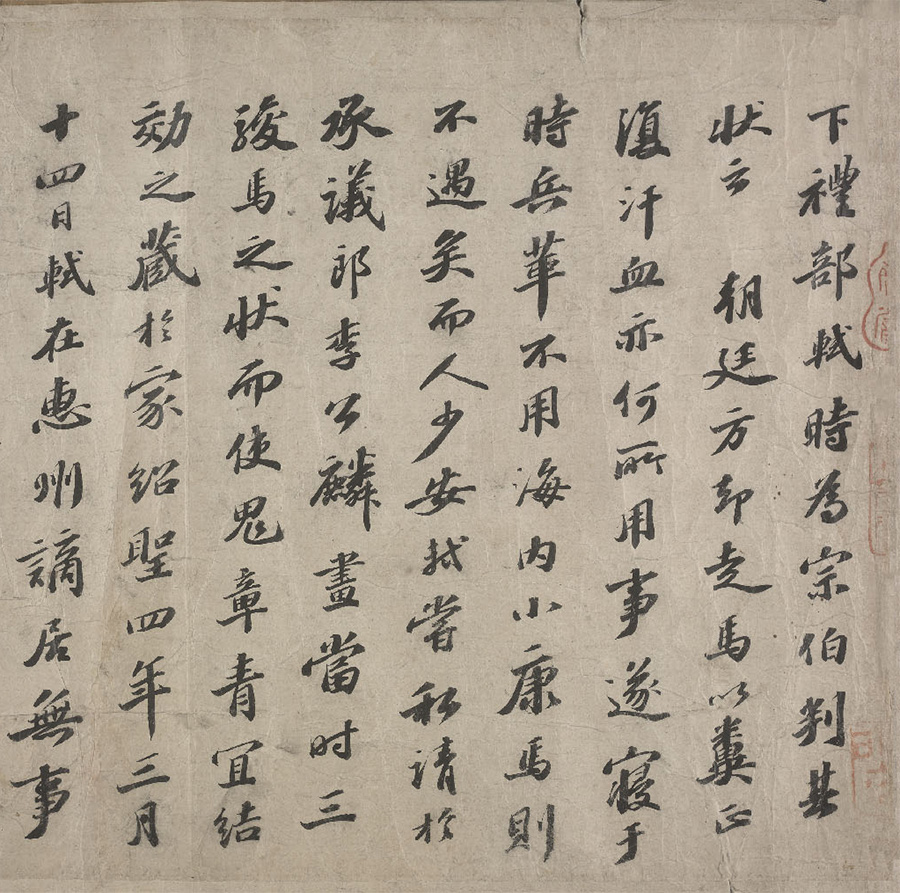 下禮部軾時為宗伯判其
状云 朝廷方却走馬以糞正
復汗血亦何所用事遂寢于
時兵革不用海内小康馬則
不遇矣而人少安軾嘗私請於
承議郎李公麟畫當时三
駿馬之状而使鬼章青宜結
効之藏於家紹聖四年三月
十四日軾在惠州謫居無事